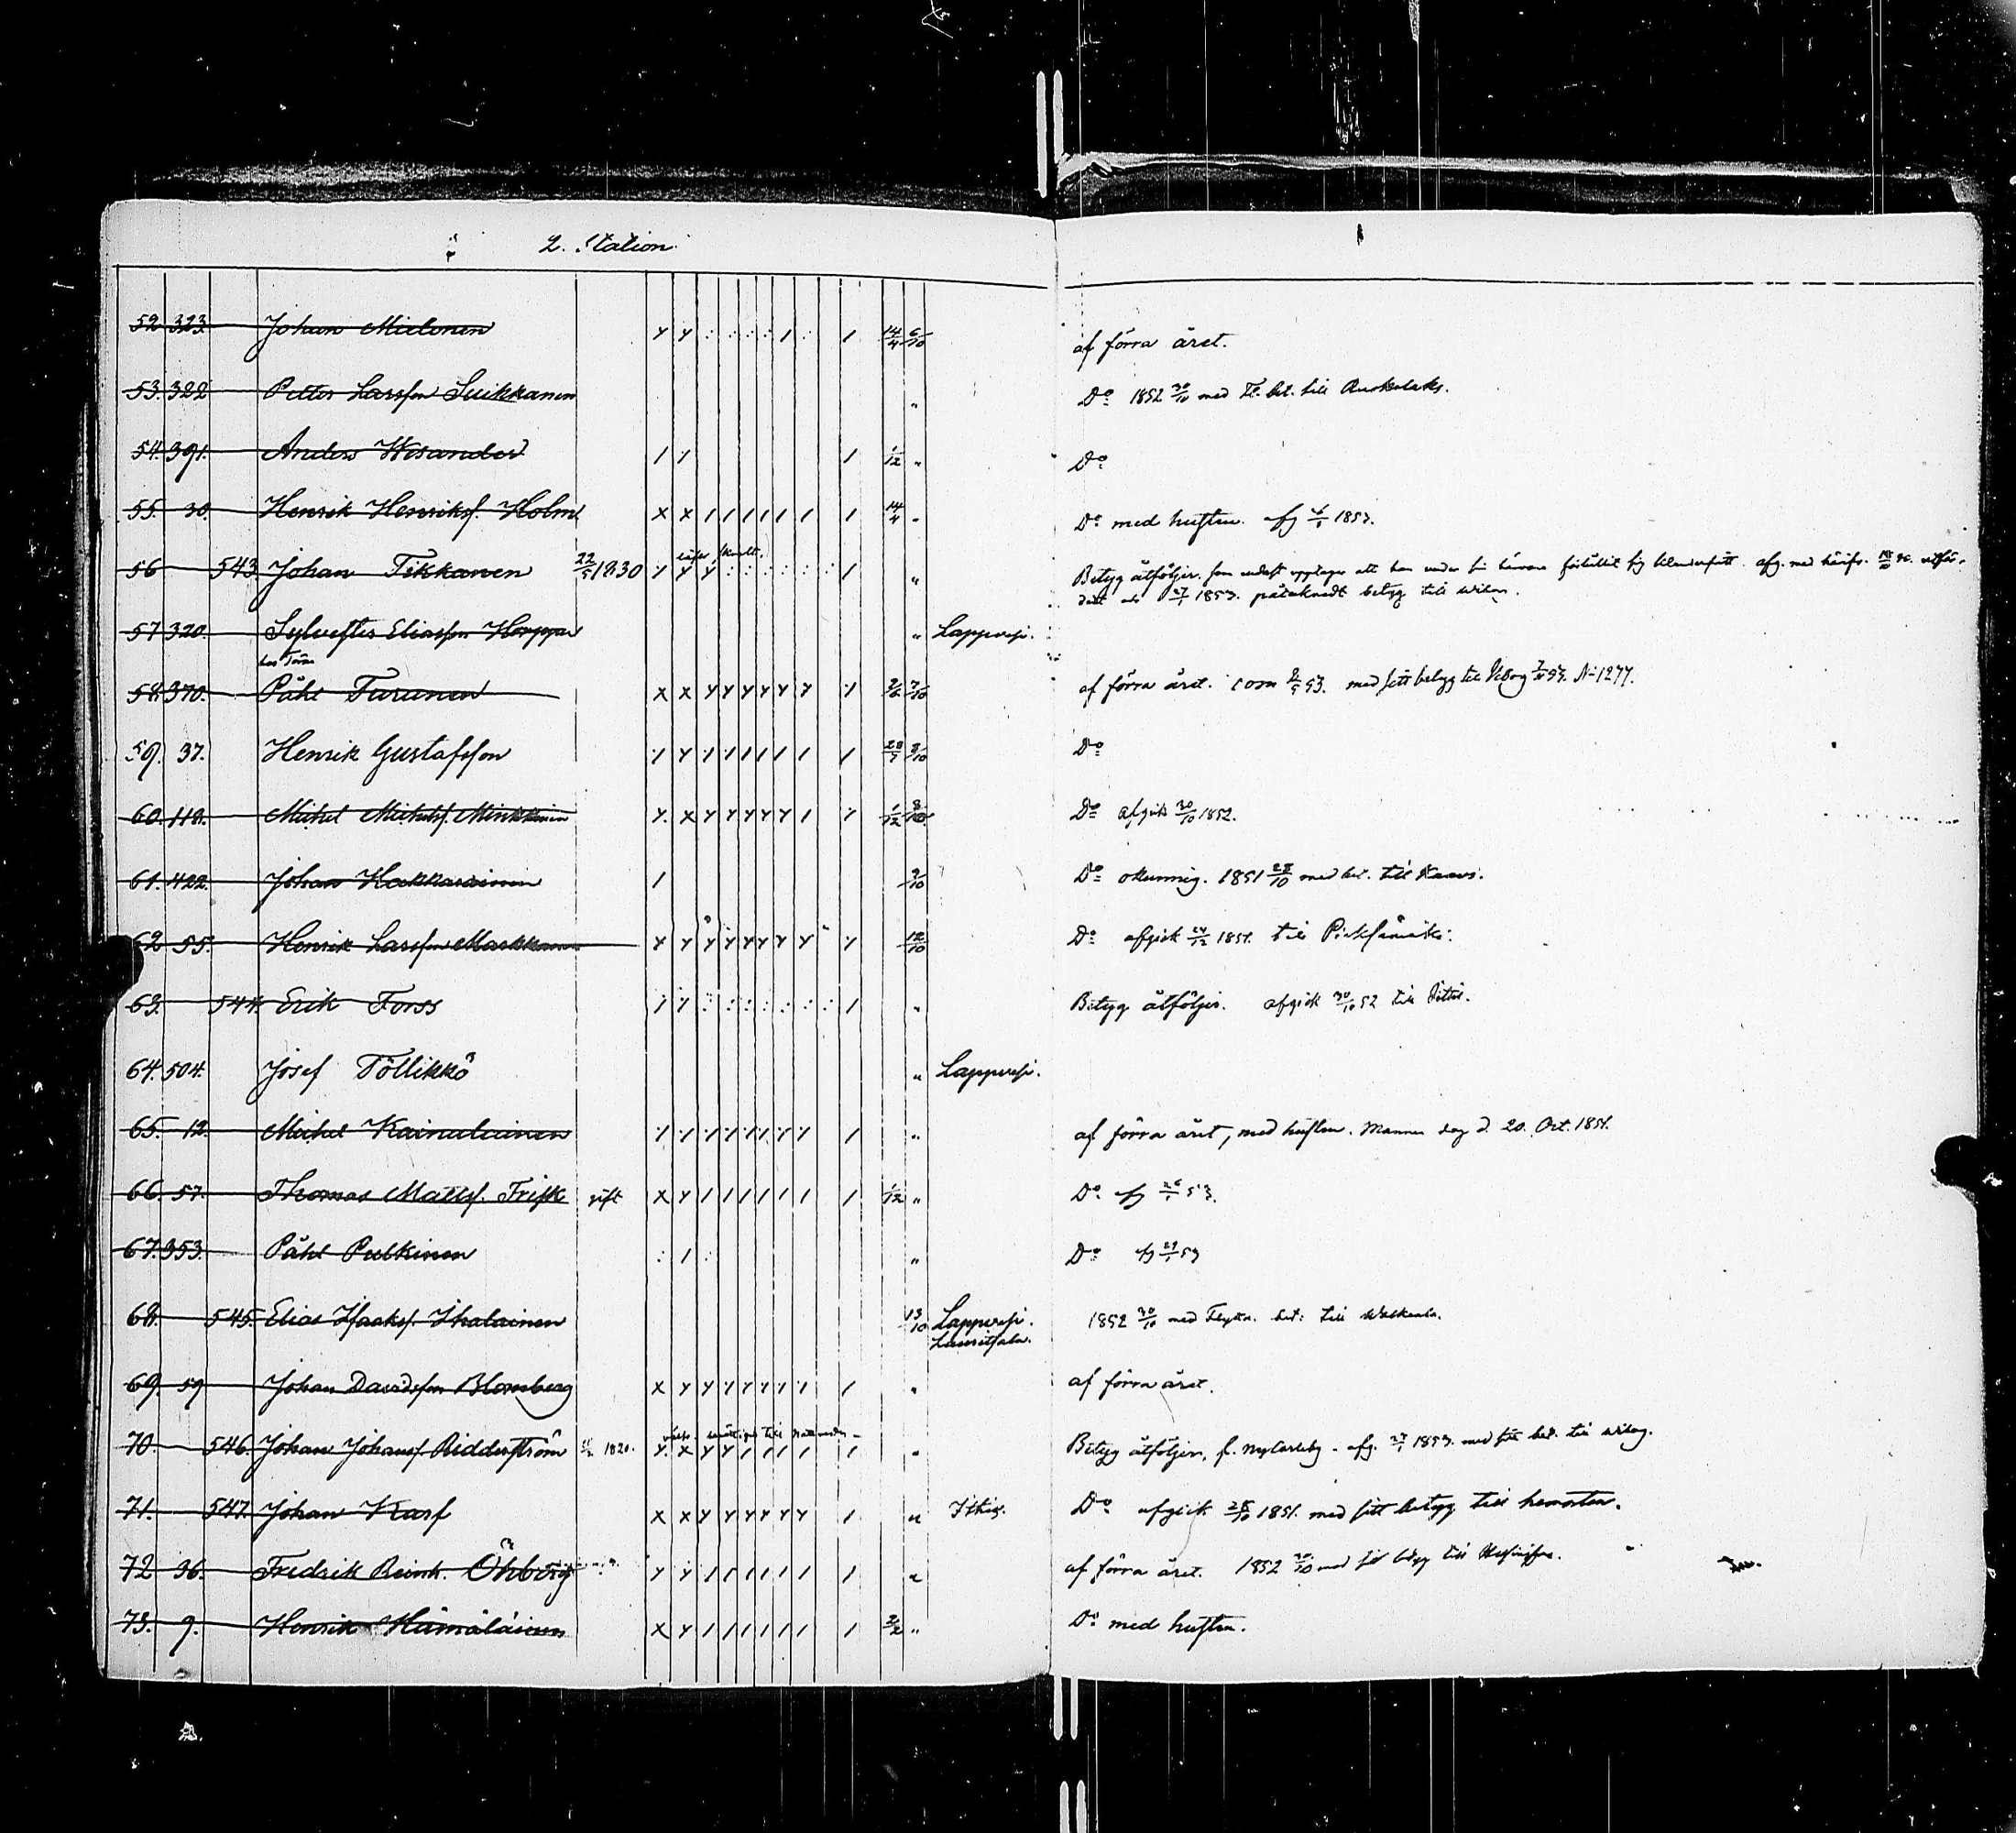 2. Station
52 323. Johan Mielonen 14/4 6/10 af förra året.
53. 322 Petter Larsson Suikkanen " Do 1852 30/10 med Fl. bet. till Ruokolaks.
54. 391. Anders Wesander 1/12 " Do
55. 30. Henrik Henriksf. Holm 14/4 " Do med hustru. afg 1853.
56 543 Johan Tikkanen 22/5 1830 " Betyg åtföljer.
27/1 1853. påteknadt betyg till
57 320. Sylvester Eliasson " Lappvesi.
58. 370. Påhl Turunen 7/10 af förra året. med sitt betyg till Viborg No 1277.
59. 37. Henrik Gustafsson 8/10 Do
60. 118. Michel Michelsf. Minkkinen 1/12 8/10 Do afgick 30/10 1852.
61. 422. Johan Hakkarainen 9/10 Do okunnig. 1851 28/10 med bet. till Kaavi.
62 55. Henrik Larsson Markkanen 12/10 Do afgick 24/12 1851. till Pieksämäki.
63. 544. Erik Forss " Betyg åtföljer. afgick 30/10 52 till
64. 504. Josef Töllikkö " Lappvesi.
65. 12. Michel Kainulainen " af förra året, med hustru. Mannen dog d. 20. Oct. 1851.
66. 57. Thomas Mattsf. Frisk gift 1/12 " Do afg 26/1 53.
67. 353. Påhl Pulkinen " Do afg 29/1 53
68. 545. Elias Isaksf. Ihalainen 13/10 Lappvesi. 1852 30/10 med Flyttn. bet. till Walkeala.
Lauritsala.
69. 59 Johan Davidsson Blomberg " af förra året.
70. 546. Johan Johansf. Ridderström 1820. " Betyg åtföljer, fr. Nycarleby - afg. 27/1 1853. med sitt bet. till Wiborg.
71. 547. Johan Karf " Do afgick 28/10 1851. med sitt betyg till hemorten.
72 36. Fredrik Reinh. Öhberg " af förra året. 1852 30/10 med betyg till
73. 9. Henrik Hämäläinen 2/2 " Do med hustru.